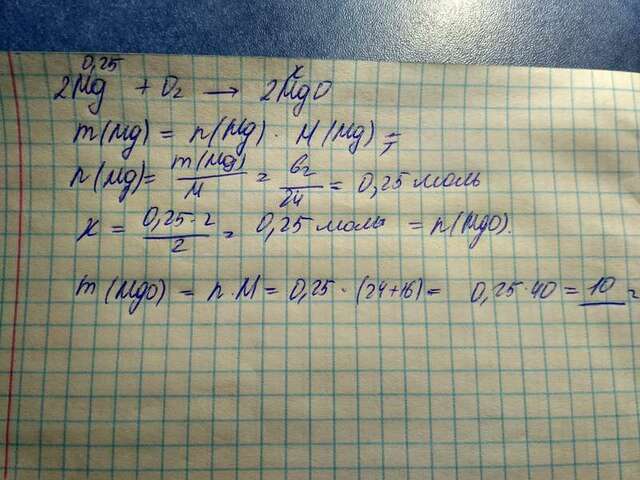 0,25 x
2Mg + O₂ → 2MgO
m(Mg) = n(Mg) · M(Mg) =
n(Mg) = m(Mg)/M = 6г/24 = 0,25 моль
x = 0,25·2/2 = 0,25 моль = n(MgO).
m(MgO) = n·M = 0,25·(24+16) = 0,25·40 = 10 г